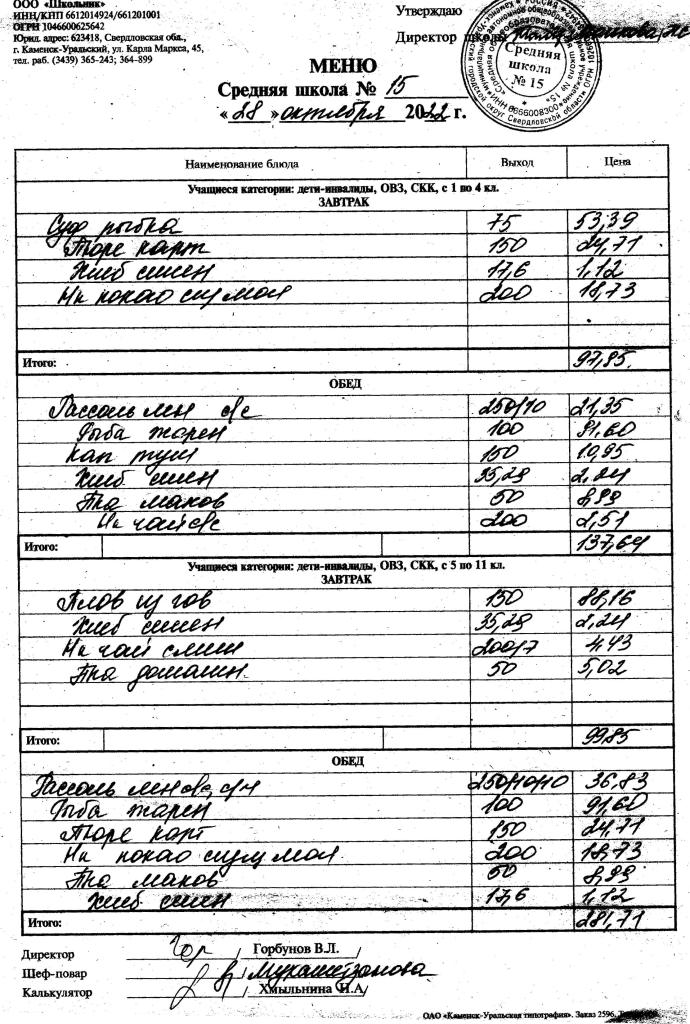 ООО «Школьник»
ИНН/КПП 6612014924/661201001
ОГРН 1046600625642
Юрид. адрес: 623418, Свердловская обл.,
г. Каменск-Уральский, ул. Карла Маркса, 45,
тел. раб. (3439) 365-243; 364-899
Утверждаю
Директор школы
Средняя
школа
№ 15
МЕНЮ
Средняя школа № 15
«28» октября 2022 г.
Наименование блюда Выход Цена
Учащиеся категории: дети-инвалиды, ОВЗ, СКК, с 1 по 4 кл.
ЗАВТРАК
Суф рыбка 75 53,39
Пюре карт 150 24,71
Хлеб пшен 17,6 1,12
Нк какао сгу мол 200 18,73
Итого: 97,85
ОБЕД
Рассоль лен с/с 250/10 21,35
Рыба жарен 100 91,60
Кап туш 150 10,95
Хлеб пшен 35,29 2,24
Пка маков 50 8,99
Нк чай с/с 200 2,51
Итого: 137,64
Учащиеся категории: дети-инвалиды, ОВЗ, СКК, с 5 по 11 кл.
ЗАВТРАК
Плов из гов 150 88,16
Хлеб пшен 35,29 2,24
Нк чай с лим 200/7 4,43
Пка домашн 50 5,02
Итого: 99,85
ОБЕД
Рассоль лен с/с, с/м 250/10/10 36,83
Рыба жарен 100 91,60
Пюре карт 150 24,71
Нк какао сгущ мол 200 18,73
Пка маков 50 8,99
Хлеб пшен 17,6 1,12
Итого: 281,71
Директор / Горбунов В.Л. /
Шеф-повар / Мухаметзянова
Калькулятор / Хмыльнина Н.А /
ОАО «Каменск-Уральская типография». Заказ 2596.